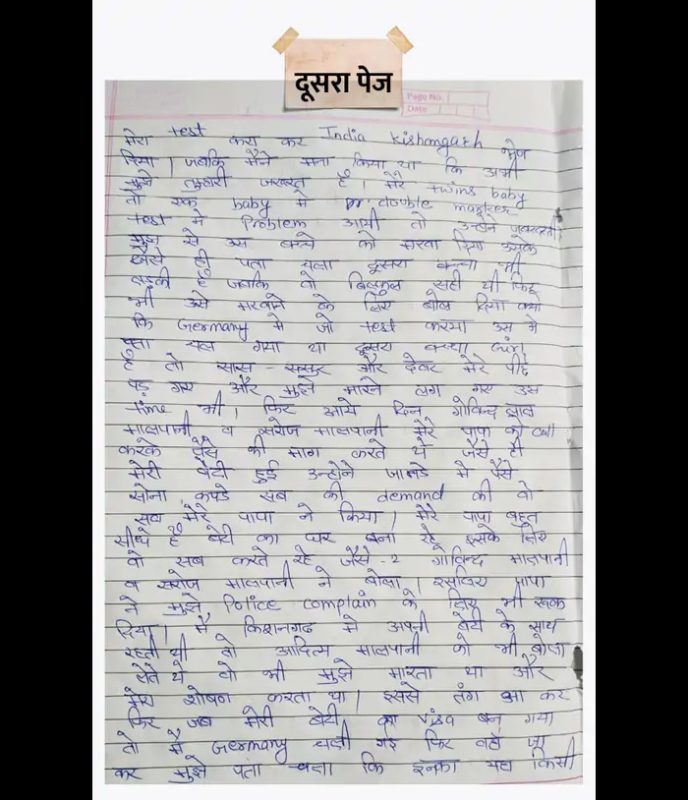 दूसरा पेज
Page No.
Date
मेरा test करा कर India Kishangarh भेज
दिया। जबकि मैंने मना किया था कि अभी
मुझे तुम्हारी जरूरत है। मेरे twins baby
तो एक baby मे double marker
test मे Problem आयी तो उन्होने जबरदस्ती
मुझ से उस बच्चे को मरवा दिया उसके
जैसे ही पता चला दूसरा बच्चा भी
लड़की है जबकि वो बिल्कुल सही थी फिर
भी उसे मरवाने के लिए बोल दिया क्यो
कि Germany मे जो test करया उस मे
पता चल गया था दूसरा बच्चा Girl
है तो सास-ससुर और देवर मेरे पीछे
पड़ गए और मुझे मारने लग गए उस
time भी। फिर आये दिन गोविन्द लाल
मालपानी व सरोज मालपानी मेरे पापा को call
करके पैसे की माग करते थे जैसे ही
मेरी बेटी हुई उन्होने जामडे मे पैसे
सोना कपडे सब की demand की वो
सब मेरे पापा ने किया। मेरे पापा बहुत
सीधे है बेटी का घर बना रहे इसके लिए
वो सब करते रहे जैसे-2 गोविन्द मालपानी
व सरोज मालपानी ने बोला। इसलिए पापा
ने मुझे Police complain के लिए भी रूक
दिया। मै किशनगढ मे अपनी बेटी के साथ
रहती थी वो आदित्य मालपानी को भी बोल
देते थे वो भी मुझे मारता था और
मेरा शोषण करता था। इससे तंग आ कर
फिर जब मेरी बेटी का Visa बन गया
तो मै Germany चली गई फिर वहाँ जा
कर मुझे पता चला कि इनका यहा किसी